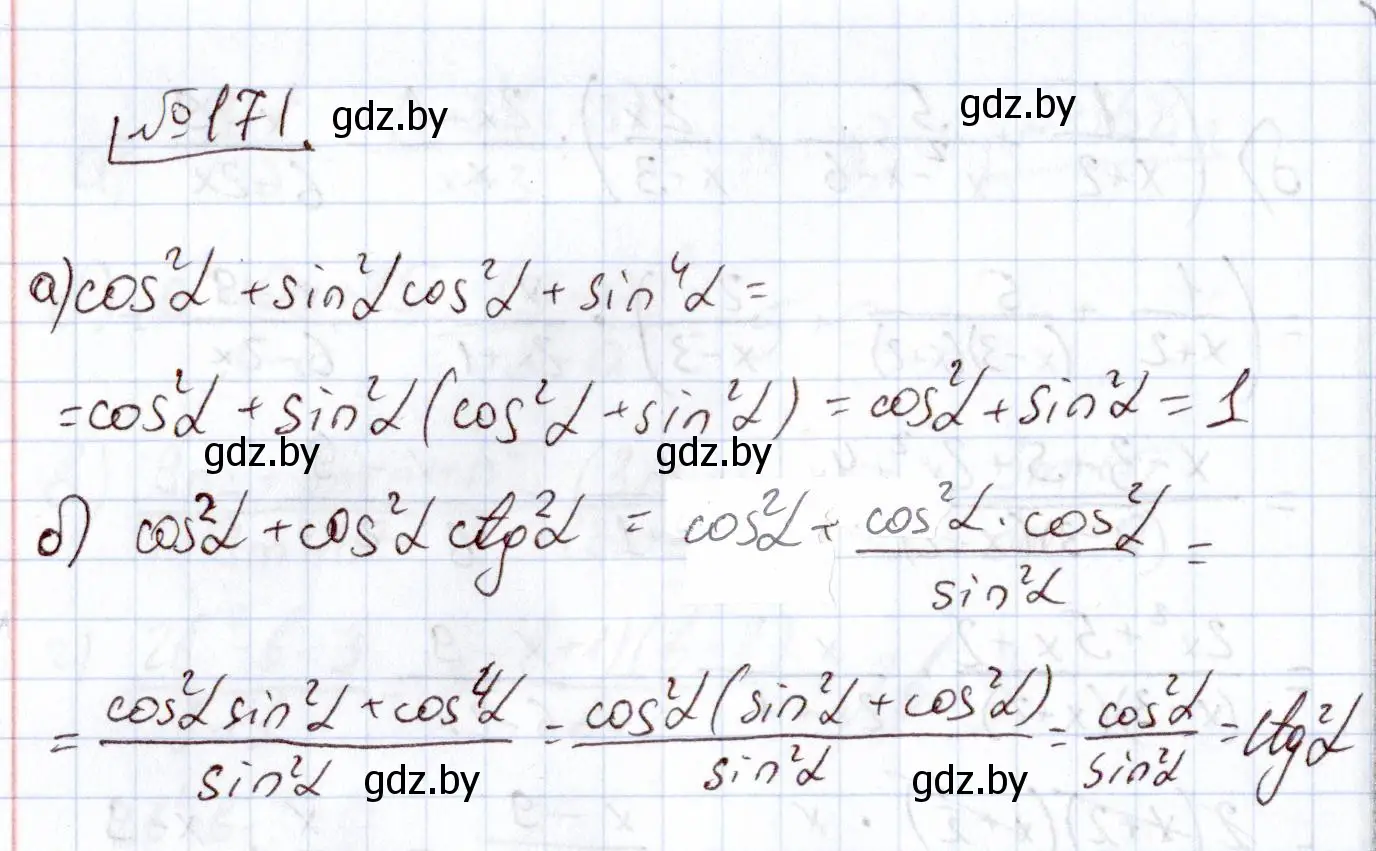 № 171 gdz.by gdz.by
а) cos²α + sin²α cos²α + sin⁴α =
= cos²α + sin²α (cos²α + sin²α) = cos²α + sin²α = 1
gdz.by gdz.by
б) cos²α + cos²α ctg²α = cos²α + (cos²α · cos²α)/(sin²α) =
= (cos²α sin²α + cos⁴α)/(sin²α) = (cos²α (sin²α + cos²α))/(sin²α) = (cos²α)/(sin²α) = ctg²α
gdz.by gdz.by